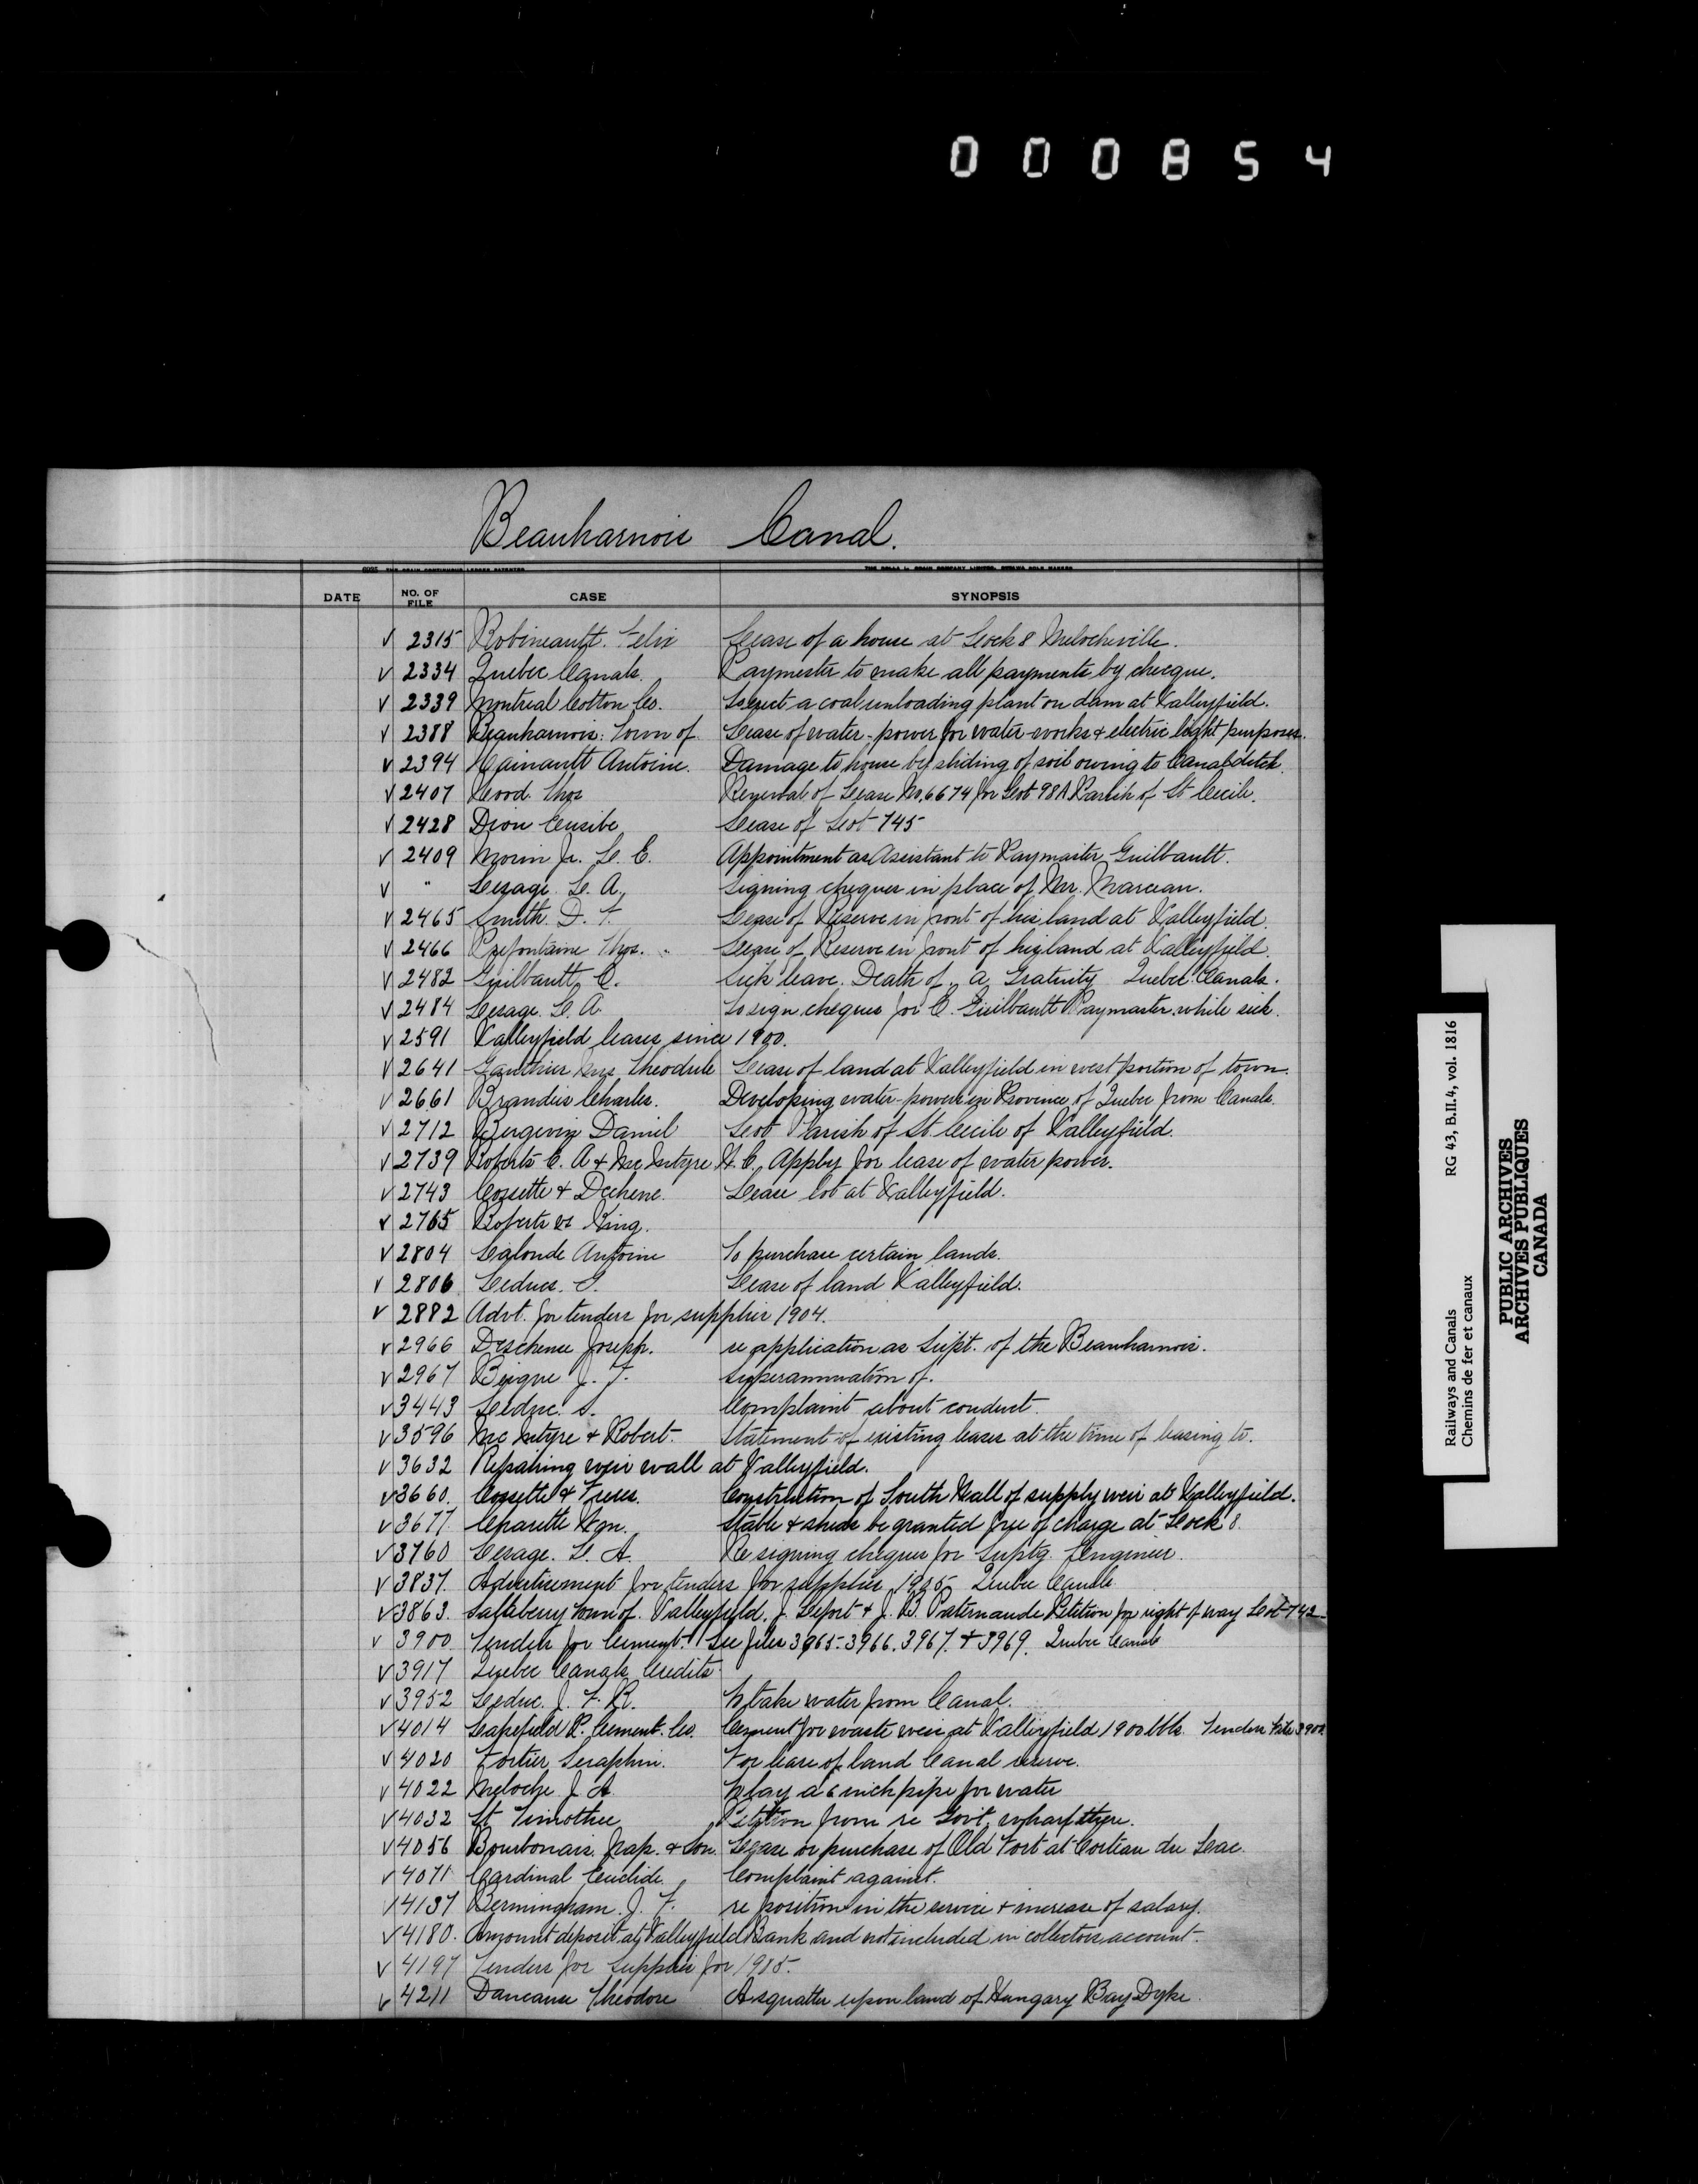 0 0 0 8 5 4
Beauharnois Canal.
DATE NO. OF FILE CASE SYNOPSIS
✓ 2315 Robineault Felix Lease of a house at Lock 8 Melocheville.
✓ 2334 Quebec Canals. Paymaster to make all payments by cheque.
✓ 2339 Montreal Cotton Co. To erect a coal unloading plant on dam at Valleyfield.
✓ 2388 Beauharnois: Town of Lease of water-power for water-works & electric light purposes.
✓ 2394 Hainault Antoine. Damage to house by sliding of soil owing to Canal ditch.
✓ 2407 Hood Thos Renewal of Lease No. 6674 for Lot 98A Parish of St Cecile.
✓ 2428 Dion Eusibe Lease of Lot 745
✓ 2409 Morin Jr. L. E. Appointment as Assistant to Paymaster Guilbault.
✓ " Lesage. L. A. Signing cheques in place of Mr. Marceau.
✓ 2465 Smith. D. F. Lease of Reserve in front of his land at Valleyfield.
✓ 2466 Prefontaine Thos. Lease of Reserve in front of his land at Valleyfield.
✓ 2482 Guilbault, E. Sick leave. Death of. a Gratuity Quebec Canals.
✓ 2484 Lesage. L. A. To sign cheques for E. Guilbault Paymaster while sick.
✓ 2591 Valleyfield leases since 1900.
✓ 2641 Gauthier Mrs Theodule Lease of land at Valleyfield in west portion of town.
✓ 2661 Brandeis Charles. Developing water-power in Province of Quebec from Canals.
✓ 2712 Bergevin Daniel Lot Parish of St. Cecile of Valleyfield.
✓ 2739 Roberts C. A & McIntyre H. C. Apply for lease of water power.
✓ 2743 Cossette & Dechene. Lease lot at Valleyfield.
✓ 2765 Roberts vs King.
✓ 2804 Lalonde Antoine To purchase certain lands.
✓ 2806 Leduc. S. Lease of land Valleyfield.
✓ 2882 Advt. for tenders for supplies 1904.
✓ 2966 Deschenes Joseph. re application as Supt. of the Beauharnois.
✓ 2967 Beique J. T. Superannuation of.
✓ 3443 Leduc. S. Complaint about conduct.
✓ 3596 McIntyre & Robert. Statement of existing leases at the time of leasing to.
✓ 3632 Repairing weir wall at Valleyfield.
✓ 3660. Cossette & Freres. Construction of South Wall of supply weir at Valleyfield.
✓ 3677 Charette Wm. Stable & sheds be granted free of charge at Lock 8.
✓ 3760 Lesage. L. A. Re signing cheques for Suptg. Engineer.
✓ 3837. Advertisement for tenders for supplies 1905 Quebec Canals
✓ 3863. Salaberry Town of. Valleyfield. J. Lefort & J. B. Paternaude Petition for right of way Lot 742
✓ 3900 Tenders for Cement. See files 3965-3966. 3967. & 3969. Quebec Canals
✓ 3917 Quebec Canals Credits
✓ 3952 Leduc. J. F. R. To take water from Canal.
✓ 4014 Lakefield P. Cement. Co. Cement for waste weir at Valleyfield 1900 bbls. Tender File 3900
✓ 4020 Fortier Seraphin. For lease of land Canal reserve.
✓ 4022 Meloche J. A. To lay a 6 inch pipe for water
✓ 4032 St. Timothee Petition from re Govt. wharf there.
✓ 4056 Bourbonais. Nap. & Son. Lease or purchase of Old Fort at Coteau du Lac.
✓ 4071 Cardinal Euclide. Complaint against.
✓ 4137 Bermingham. J. F. re position in the service & increase of salary.
✓ 4180. Amount deposit at Valleyfield Bank and not included in collectors account.
✓ 4197 Tenders for supplies for 1905.
✓ 4211 Dancause Theodore A squatter upon land of Hungary Bay Dyke.
Railways and Canals RG 43, B.II.4, vol. 1816
Chemins de fer et canaux
PUBLIC ARCHIVES
ARCHIVES PUBLIQUES
CANADA